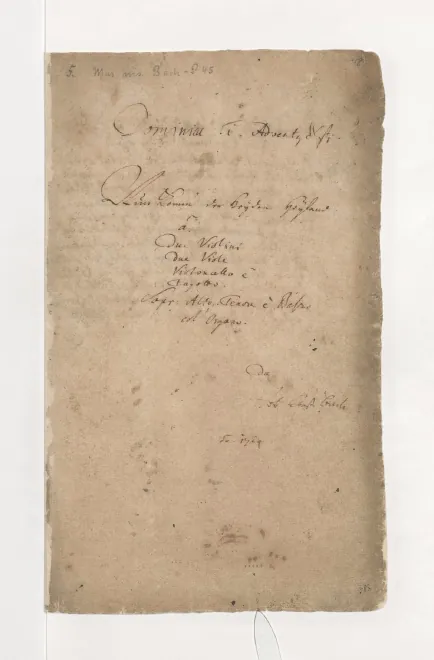 5. Mus. ms. Bach P 45
Dominica 1. Advent
Nun komm der Heyden Heyland
à
due Violini
due Viole
Violoncello è
Fagotto.
Sopr: Alto. Tenor è Basso
col' Organo.
da